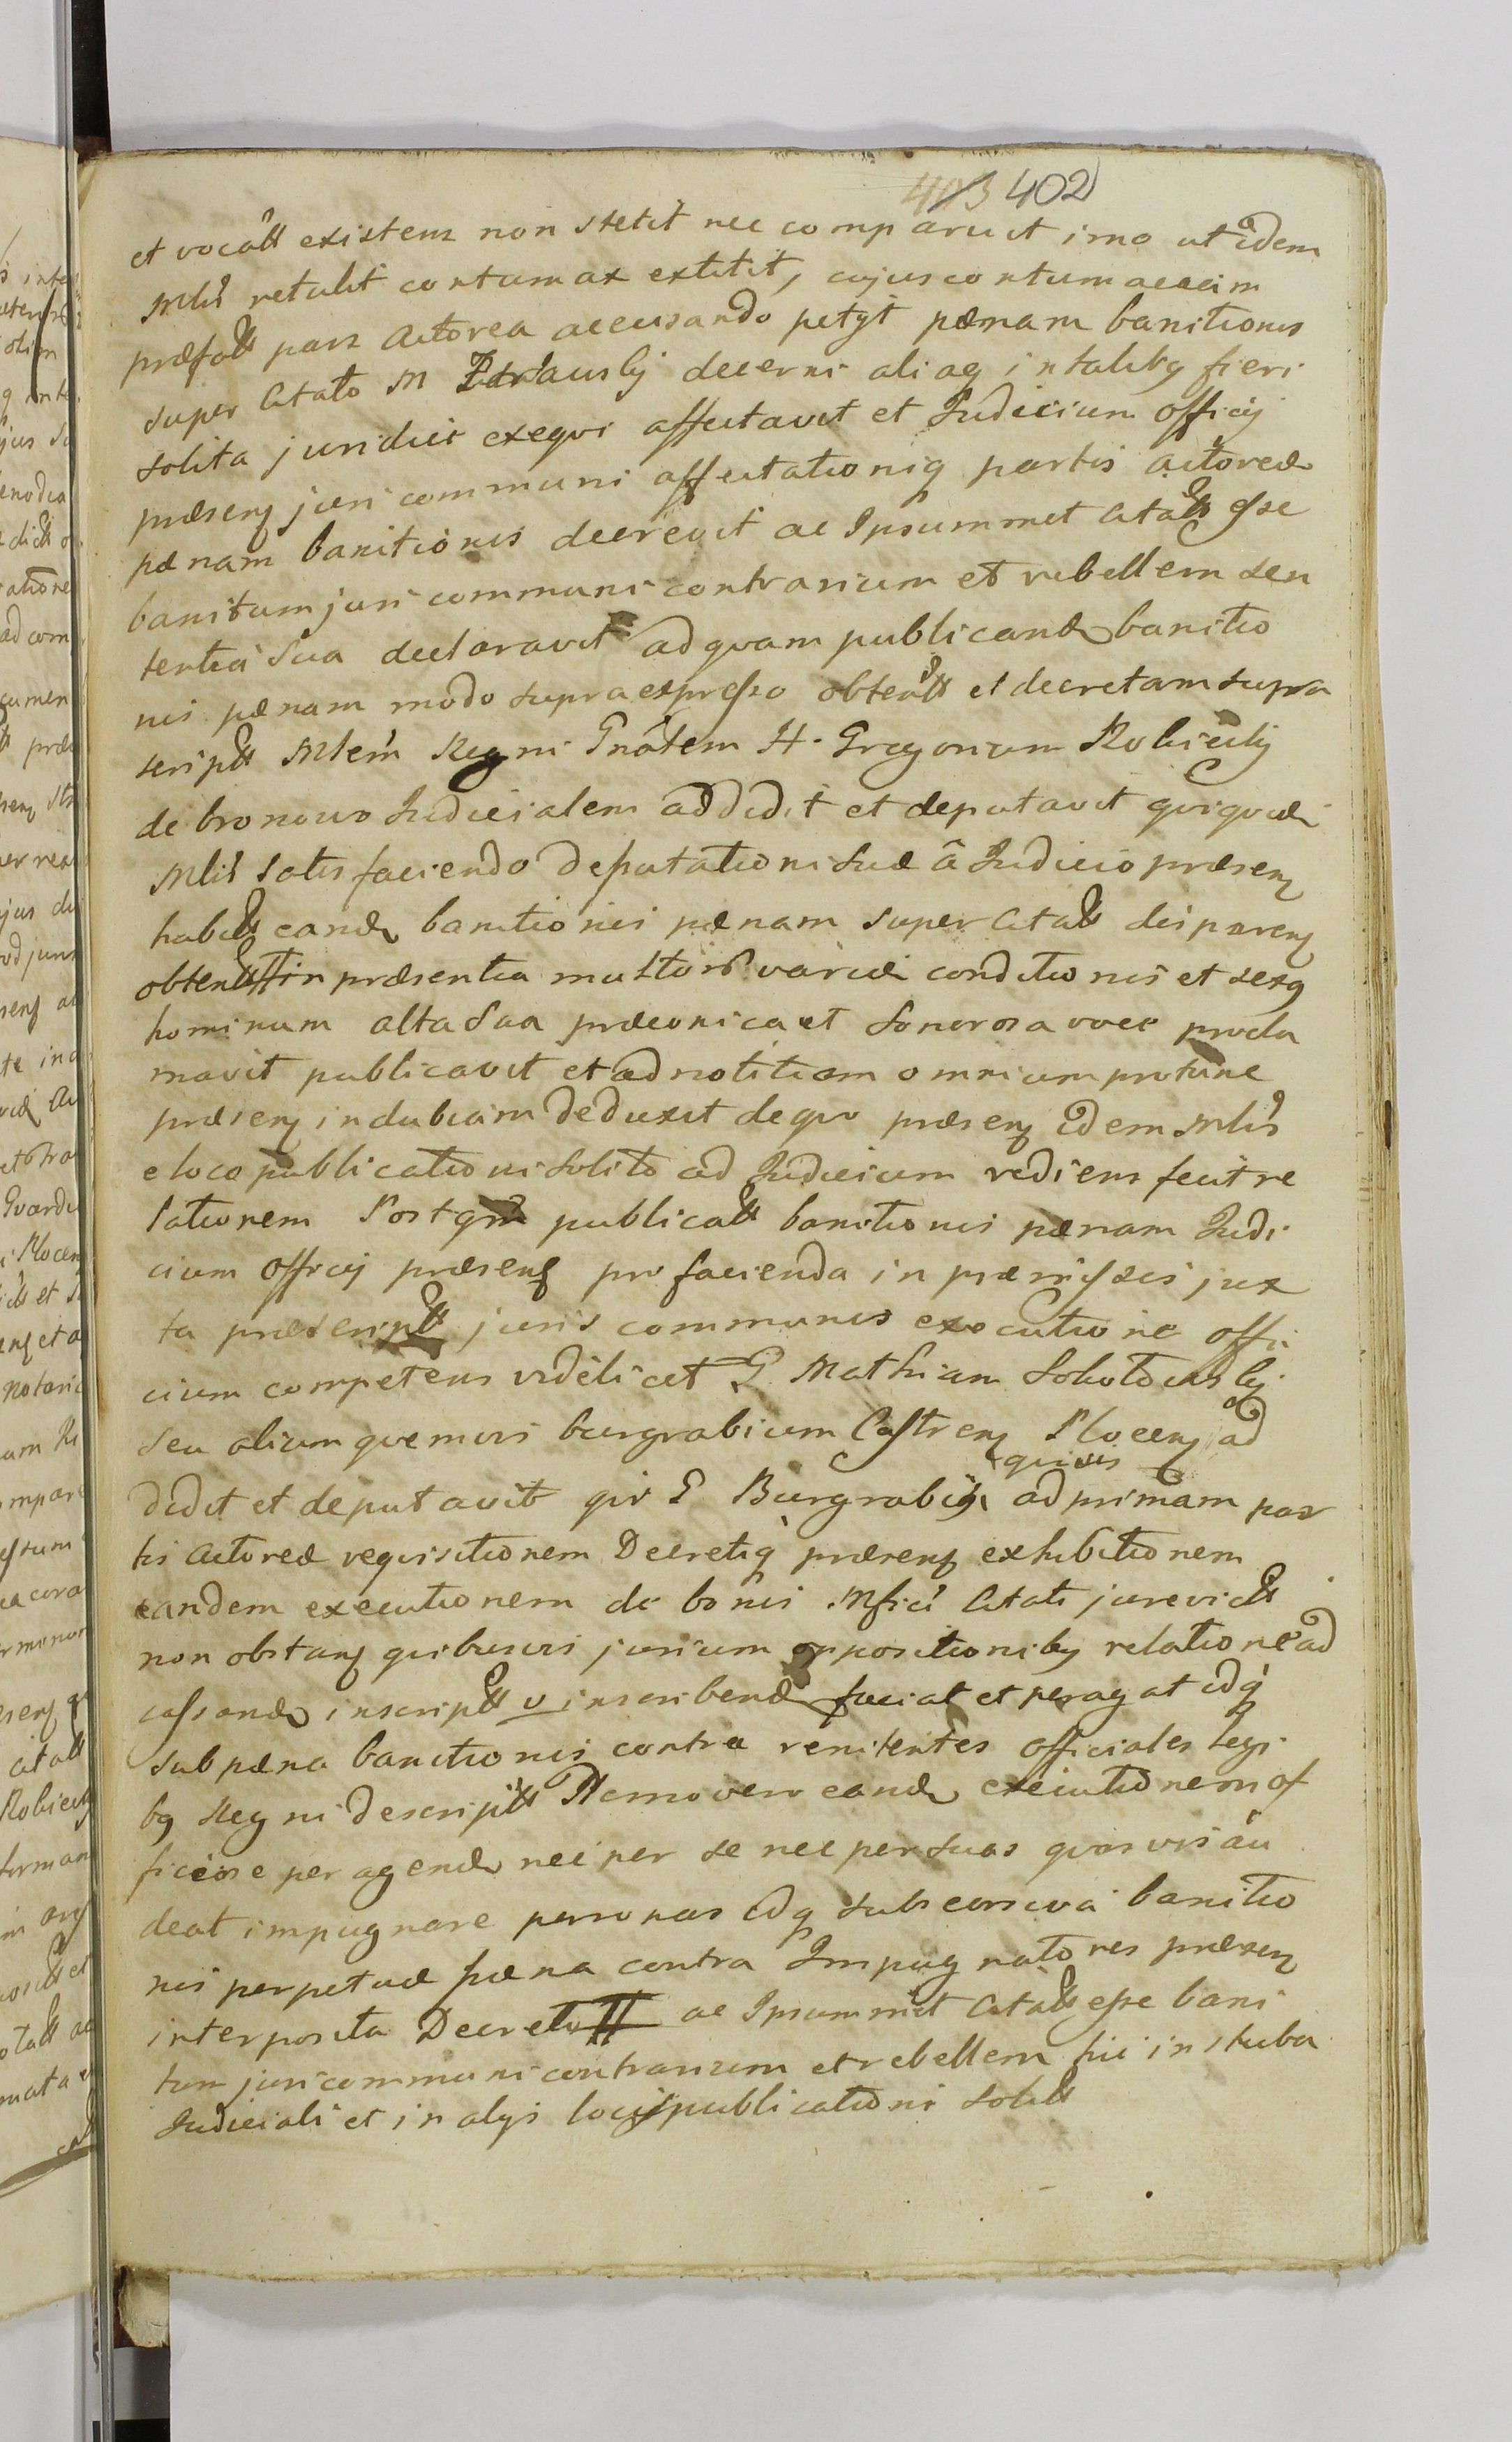 403 402
et vocatt existens non stetit nec comparuit imo ut idem
Mlis retulit contumax extitit, cujus contumaciam
præfatt pars Actorea accusando petyt pænam banitionis
super Citato M decerni aliaq in talibq fieri
solita juridice exequi affectavit et Judicium Officij
præsenq juri communi affectationiq partis Actoreæ
pænam banitionis decrevit ac Ipsummet Citatt esse
banitum juri communi contrarium et rebellem sen
tentia Sua declaravit ad quam publicand banitio
nis pænam modo supraexpresso obtentt et decretam supra
scriptt Mlem Regni Gnalem H. Gregorium Robiecky
de bronowo Judicialem addidit et deputavit quiquidē
Mlis satisfaciendo deputationi suæ â Judicio præsenq
habitt eand banitionis pænam super Citatt
obtentt in præsentia multorū variæ conditionis et sexq
hominum alta Sua præconica et Sonorosa voce procla
mavit publicavit et ad notitiam omnium protunc
præsenq indubiam deduxit de quo præsenq idem Mlis
e loco publicationi solito ad Judicium rediens fecit re
lationem Postqm publicatt banitionis pænam Judi
cium Officij præsenq pro facienda in præmissis jux
ta præscriptt juris communis executione offi
cium competens videlicet G. Mathiam Sokolowsky
seu alium quemvis burgrabium Castrenq Plocenq ad
quivis
didit et deputavit qui G Burgrabiq ad primam par
tis Actoreæ requisitionem Decretiq præsenq exhibitionem
eandem executionem de bonis Mfici Citati jurevictt
non obstanq quibusvis jurium oppositionibq relatione ad
cassand inscriptt v inscribend faciat et peragat idq
sub pæna banitionis contra renitentes officiales legi
bq Regni descriptt Nemo vero eand executionem of
ficiose peragend nec per se nec per suas quasvis au
deat impugnare personas idq sub corsiva banitio
nis perpetuæ pæna contra Impugnatores præsenq
interposita Decreto ac Ipsummet Citatt esse bani
tum juri communi contrarium et rebellem hic in stuba
Judiciali et in alys locis publicationi solitt